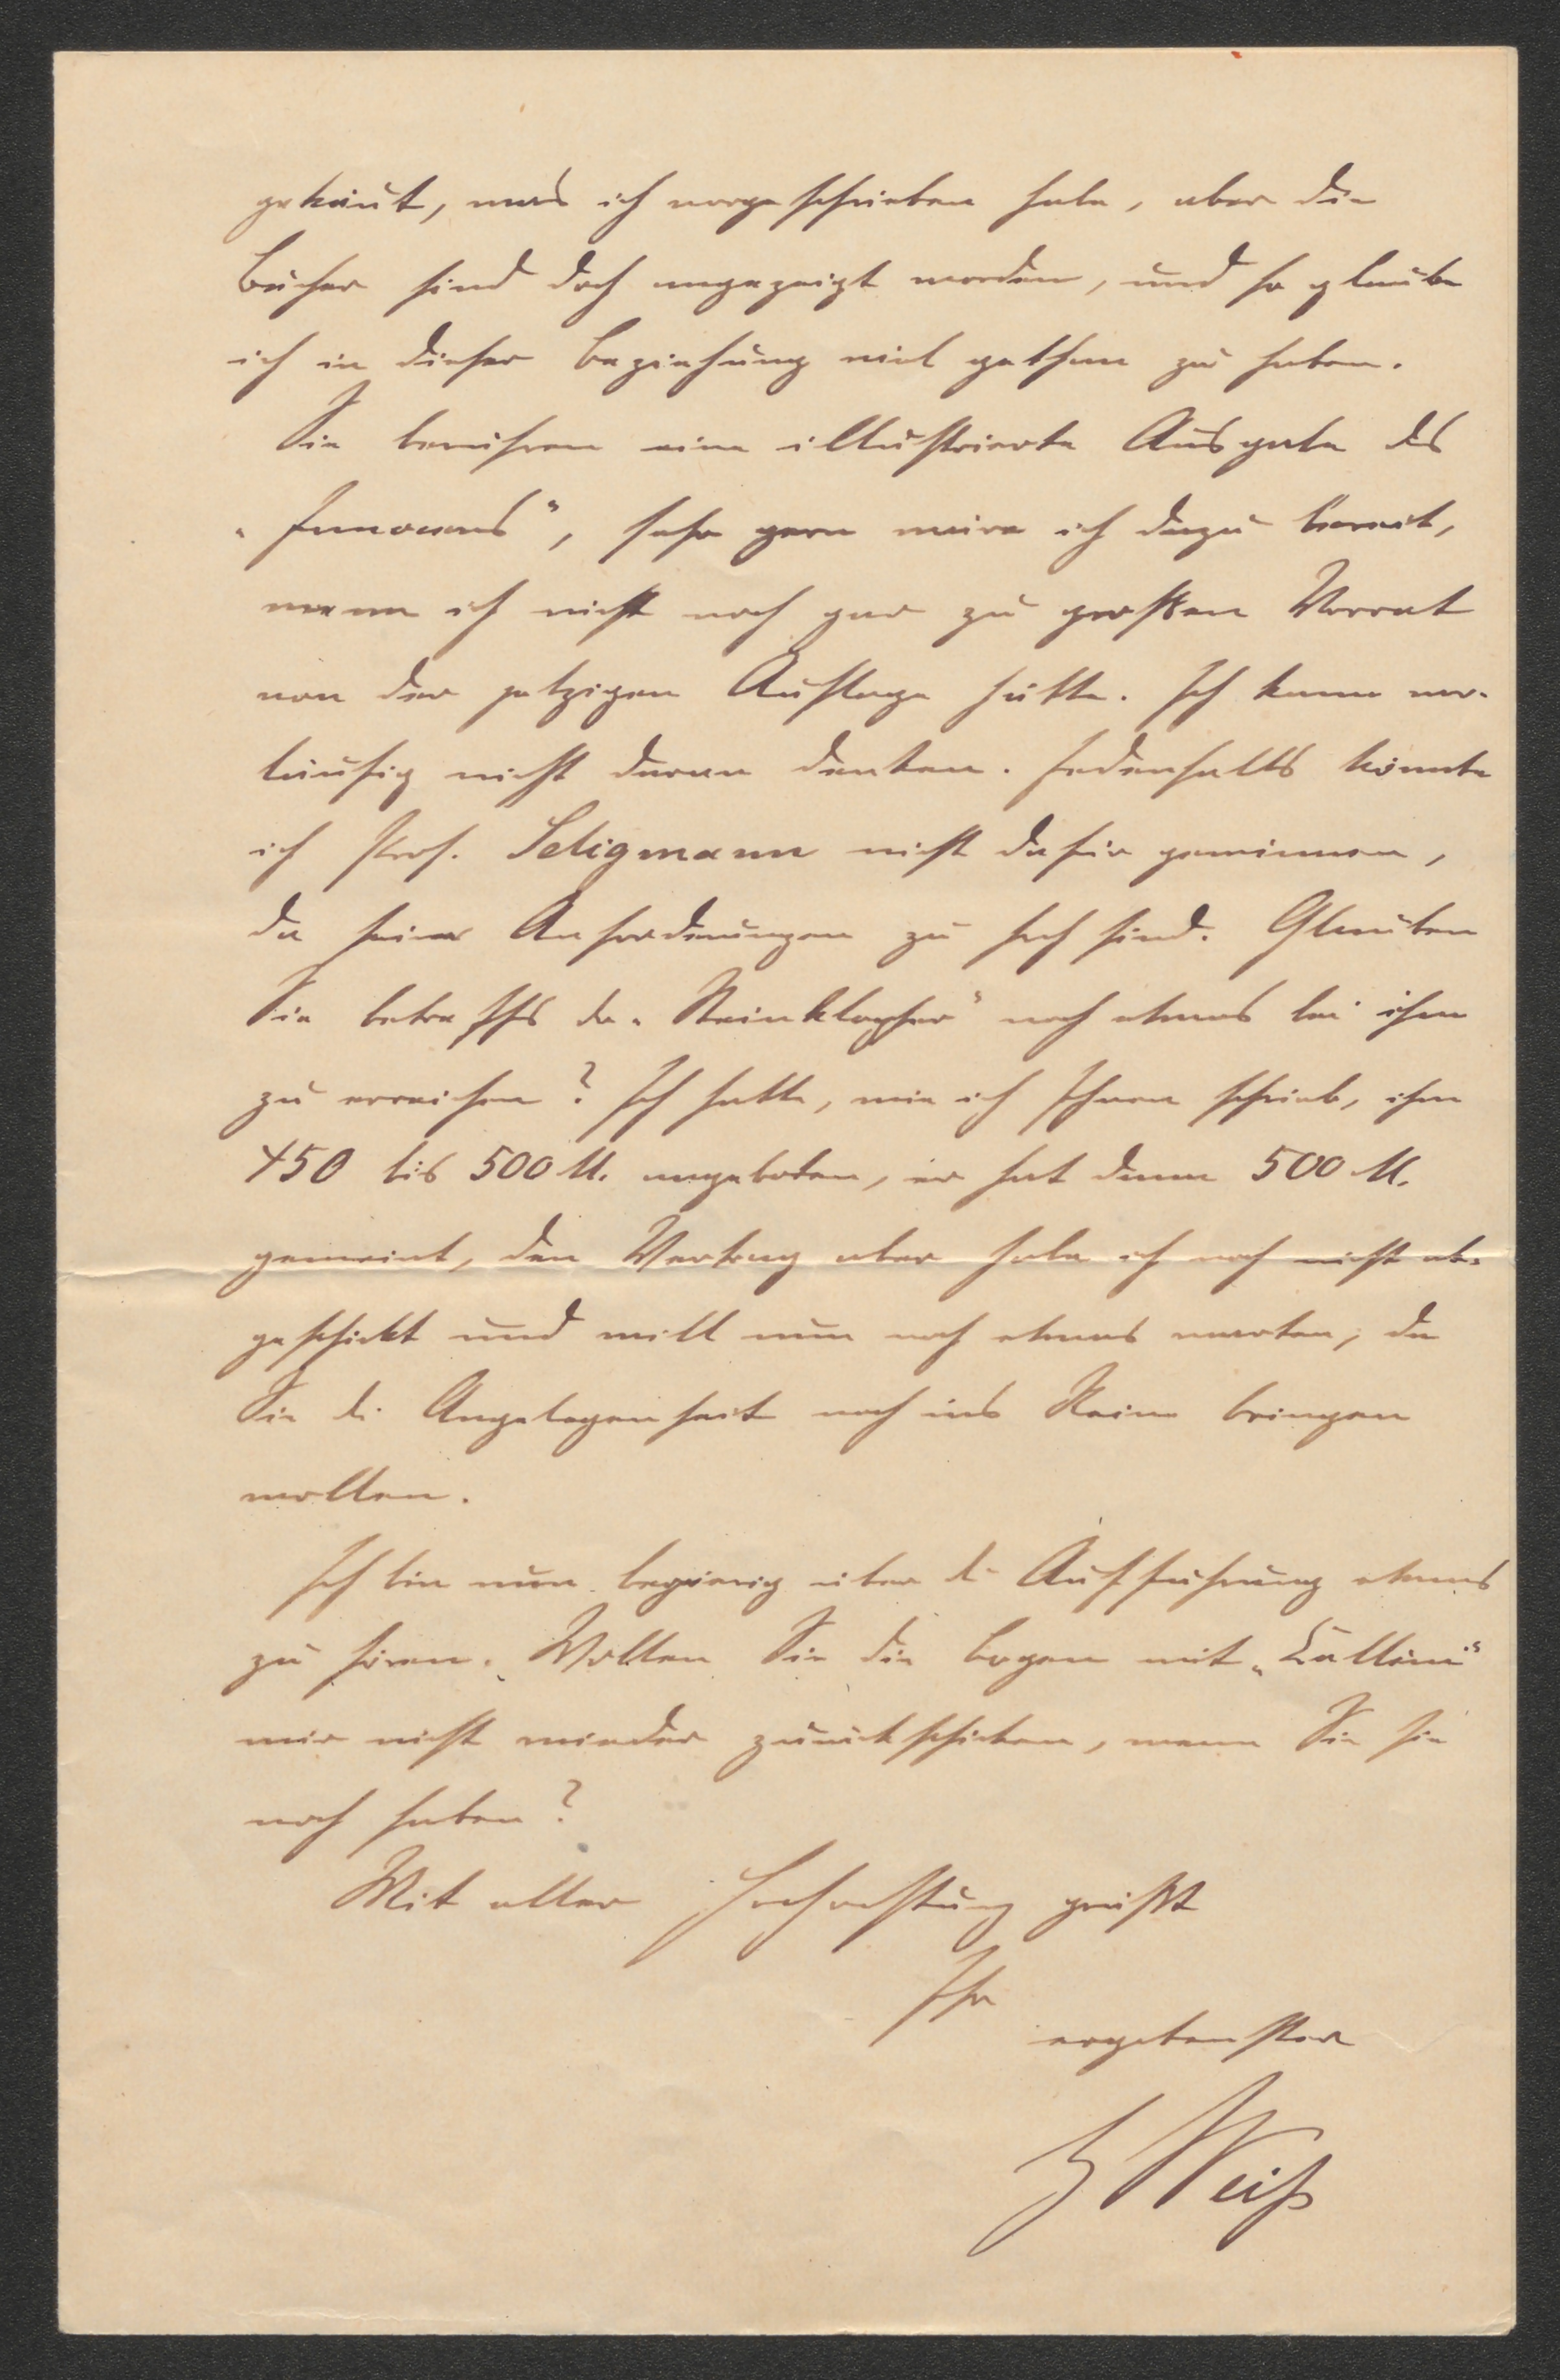 gekäut, was ich vorgeschrieben habe, aber die
Bücher sind doch angezeigt worden, und so glaube
ich in dieser Beziehung viel gethan zu haben.
Sie berühren eine illustrierte Ausgabe des
„Innocens", sehr gern wäre ich dazu bereit,
wenn ich nicht noch gar zu großen Vorrat
von der jetzigen Auflage hätte. Ich kann vor-
läufig nicht daran denken. Jedenfalls könnte
ich Prof. Seligmann nicht dafür gewinnen,
da seine Anforderungen zu hoch sind. Glauben
Sie betreffs der „Steinklopfer" noch etwas bei ihm
zu erreichen? Ich hatte, wie ich Ihnen schrieb, ihm
450 bis 500 M. angeboten, er hat dann 500 M.
gemeint, den Vertrag aber habe ich noch nicht ab-
geschickt und will nun noch etwas warten, da
Sie die Angelegenheit noch ins Reine bringen
wollen.
Ich bin nun begierig über die Aufführung etwas
zu hören. Wollen Sie die Bogen mit
mir nicht wieder zurückschicken, wenn Sie sie
noch haben?
Mit aller Hochachtung grüßt
Ihr
ergebenster
Weiß